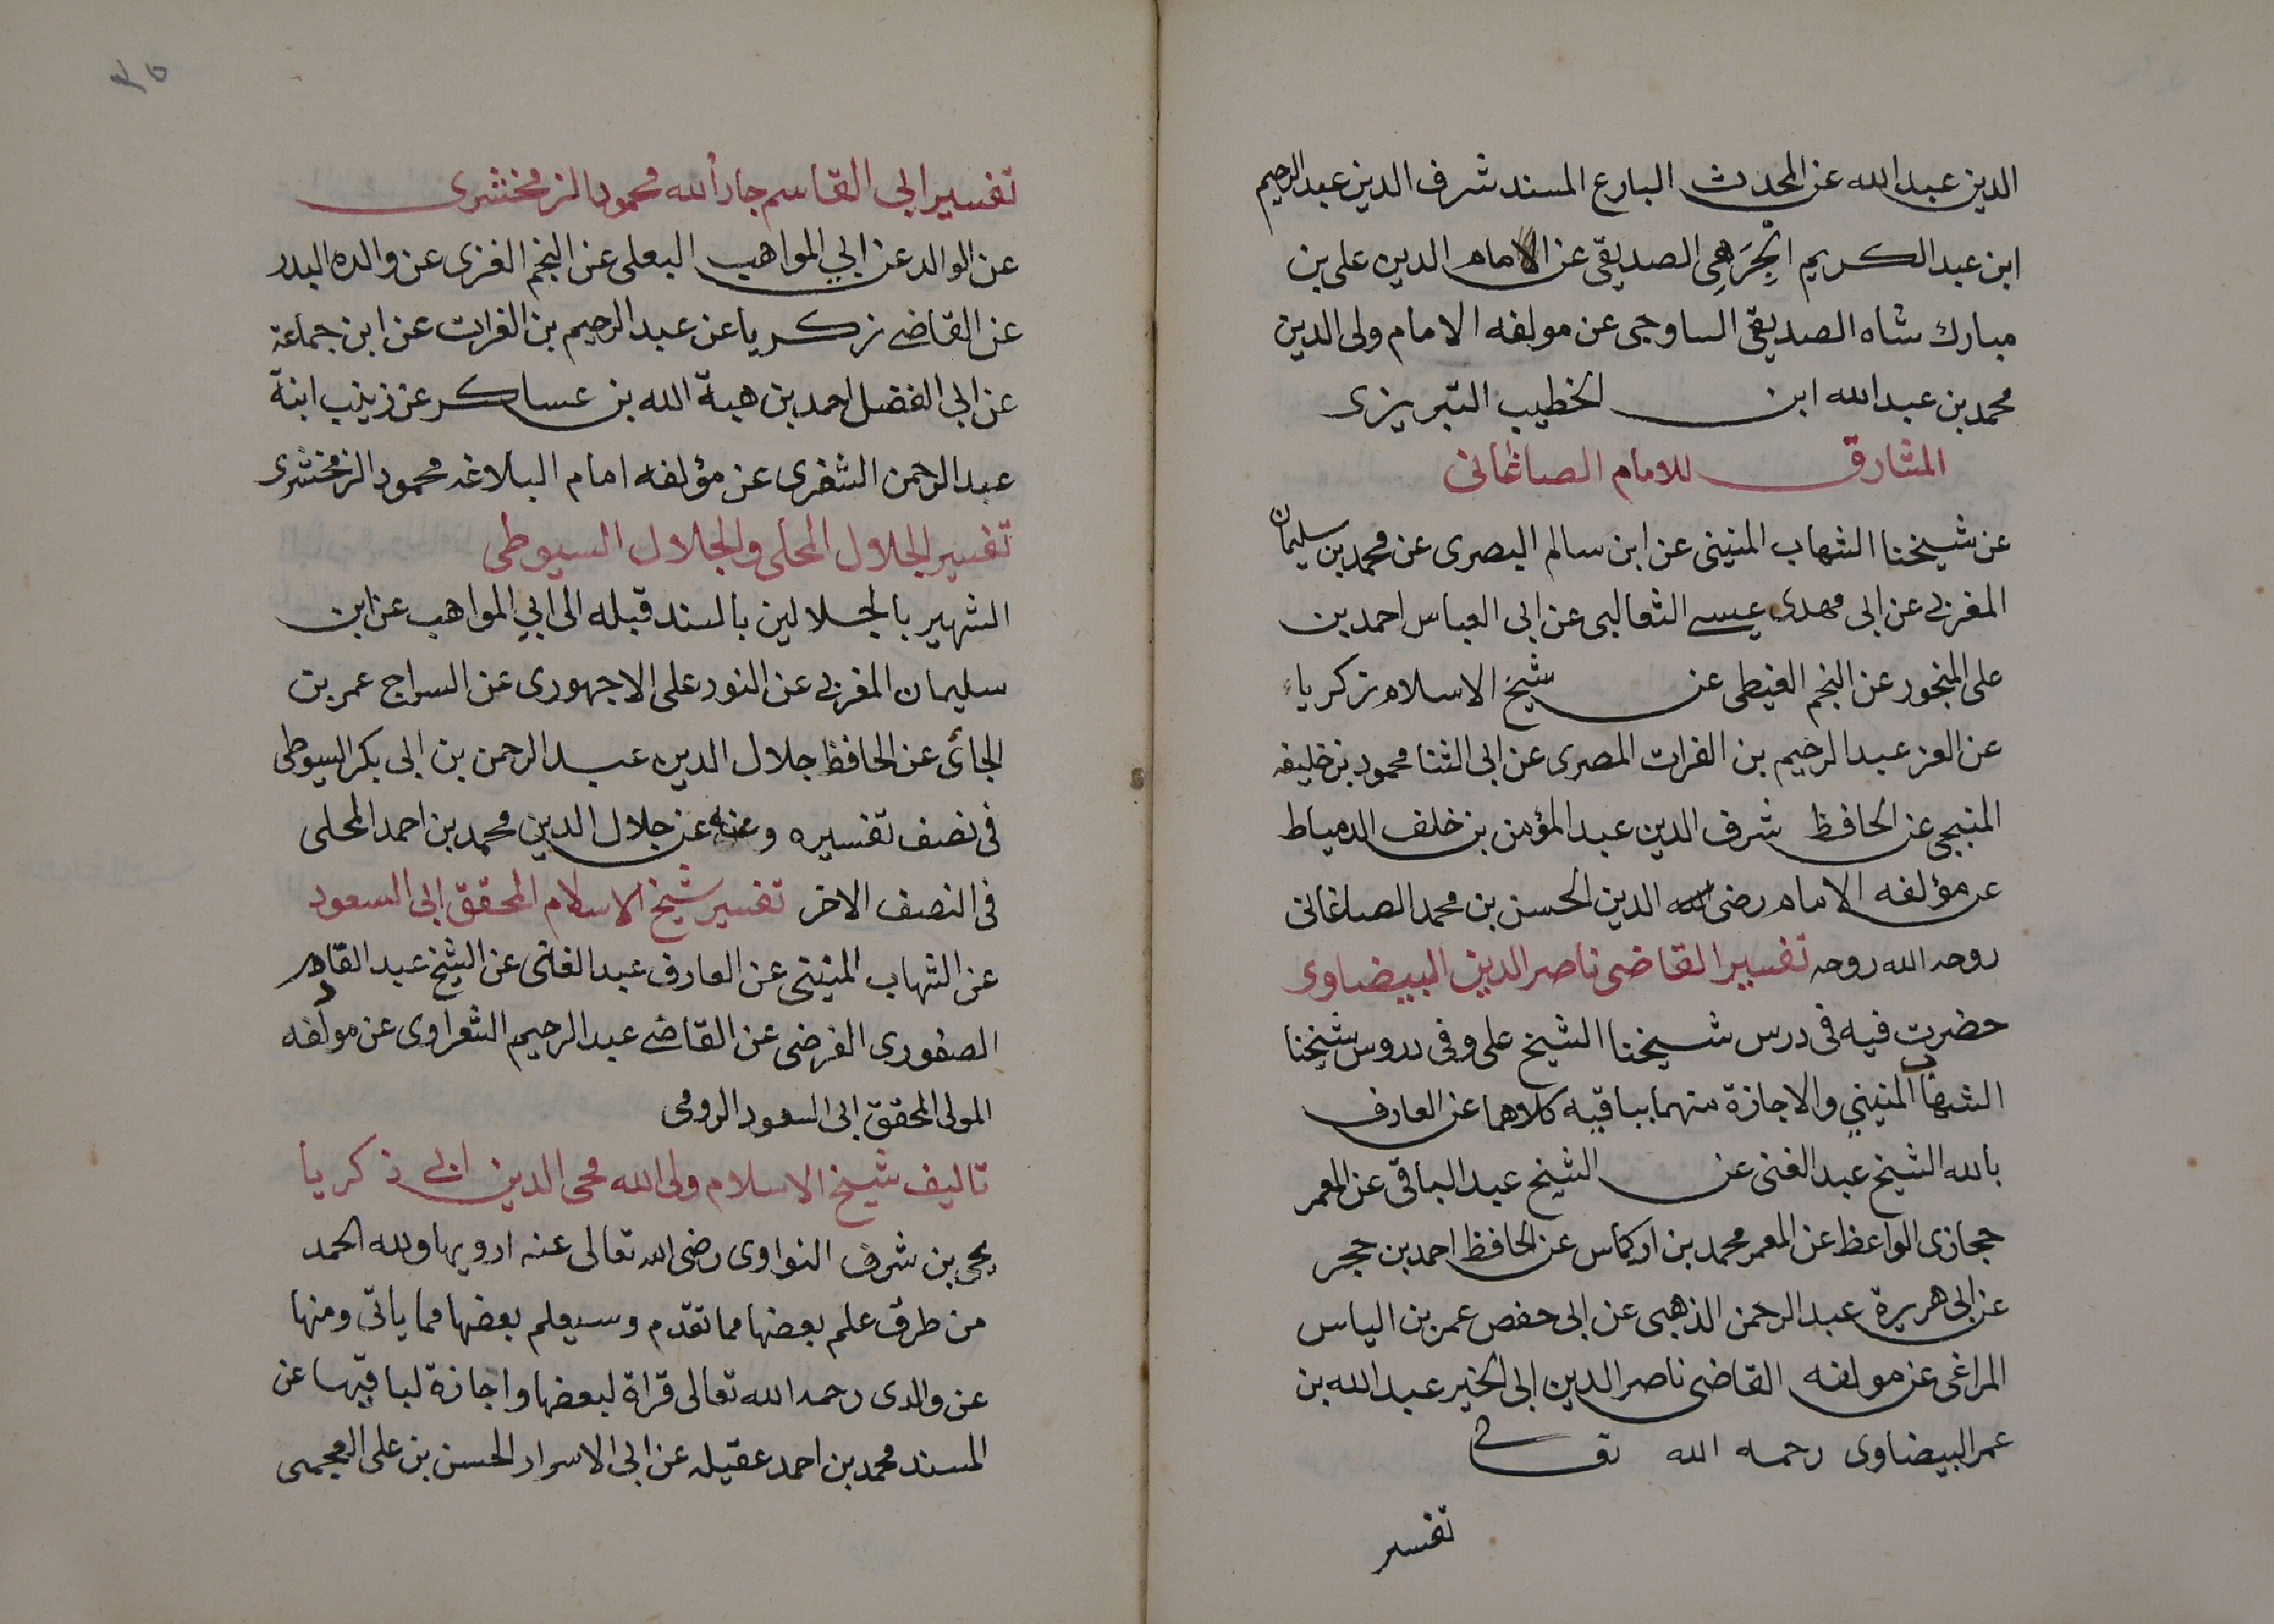 الدين عبد الله عن المحدث البارع المسند شرف الدين عبد الرحيم
ابن عبد الكريم الجِرَهِي الصديقي عن الامام الدين على بن
مبارك شاه الصديقى الساوجى عن مولفه الامام ولى الدين
محمد بن عبد الله ابن الخطيب التبريزى
المشارق للامام الصاغانى
عن شيخنا الشهاب المنينى عن ابن سالم البصرى عن محمد بن سليمان
المغربى عن ابى مهدى عيسى الثعالبى عن ابى العباس احمد بن
على المنجور عن النجم الغيطى عن شيخ الاسلام زكرياء
عن العز عبد الرحيم بن الفرات المصرى عن ابى الثنا محمود بن خليفه
المنبجى عن الحافظ شرف الدين عبد المؤمن بن خلف الدمياط
عن مؤلفه الامام رضى الدين الحسن بن محمد الصاغانى
روحه الله روحه تفسير القاضى ناصر الدين البيضاوى
حضرت فيه فى درس شيخنا الشيخ على وفى دروس شيخنا
الشهاب المنينى والاجازة منهما بباقيه كلاهما عن العارف
بالله الشيخ عبد الغنى عن الشيخ عبد الباقى عن المعمر
حجازى الواعظ عن المعمر محمد بن اركماس عن الحافظ احمد بن حجر
عن ابى هريرة عبد الرحمن الذهبى عن ابى حفص عمر بن الياس
المراغى عن مولفه القاضى ناصر الدين ابى الخير عبد الله بن
عمر البيضاوى رحمه الله تعالى
تفسير
٣٥
تفسير ابى القاسم جار الله محمود الزمخشرى
عن الوالد عن ابي المواهب البعلى عن النجم الغزى عن والده البدر
عن القاضى زكريا عن عبد الرحيم بن الفرات عن ابن جماعة
عن ابى الفضل احمد بن هبة الله بن عساكر عن زينب ابنة
عبد الرحمن الشغرى عن مؤلفه امام البلاغه محمود الزمخشرى
تفسير الجلال المحلى والجلال السيوطى
الشهير بالجلالين بالسند قبله الى ابي المواهب عن ابن
سليمان المغربى عن النور على الاجهورى عن السراج عمر بن
الجائ عن الحافظ جلال الدين عبد الرحمن بن ابى بكر السيوطى
فى نصف تفسيره وعنه عن جلال الدين محمد بن احمد المحلى
فى النصف الاخر تفسير شيخ الاسلام المحقق ابى السعود
عن الشهاب المنينى عن العارف عبد الغنى عن الشيخ عبد القادر
الصفورى الفرضى عن القاضى عبد الرحيم الشعراوى عن مولفه
المولى المحقق ابى السعود الرومى
تاليف شيخ الاسلام ولى الله محى الدين ابى زكريا
يحيى بن شرف النواوى رضى الله تعالى عنه ارويها ولله الحمد
من طرق علم بعضها مما تقدّم وسيعلم بعضها مما ياتى ومنها
عن والدى رحمه الله تعالى قراة لبعضها واجازة لباقيها عن
المسند محمد بن احمد عقيله عن ابى الاسرار الحسن بن على العجيمى